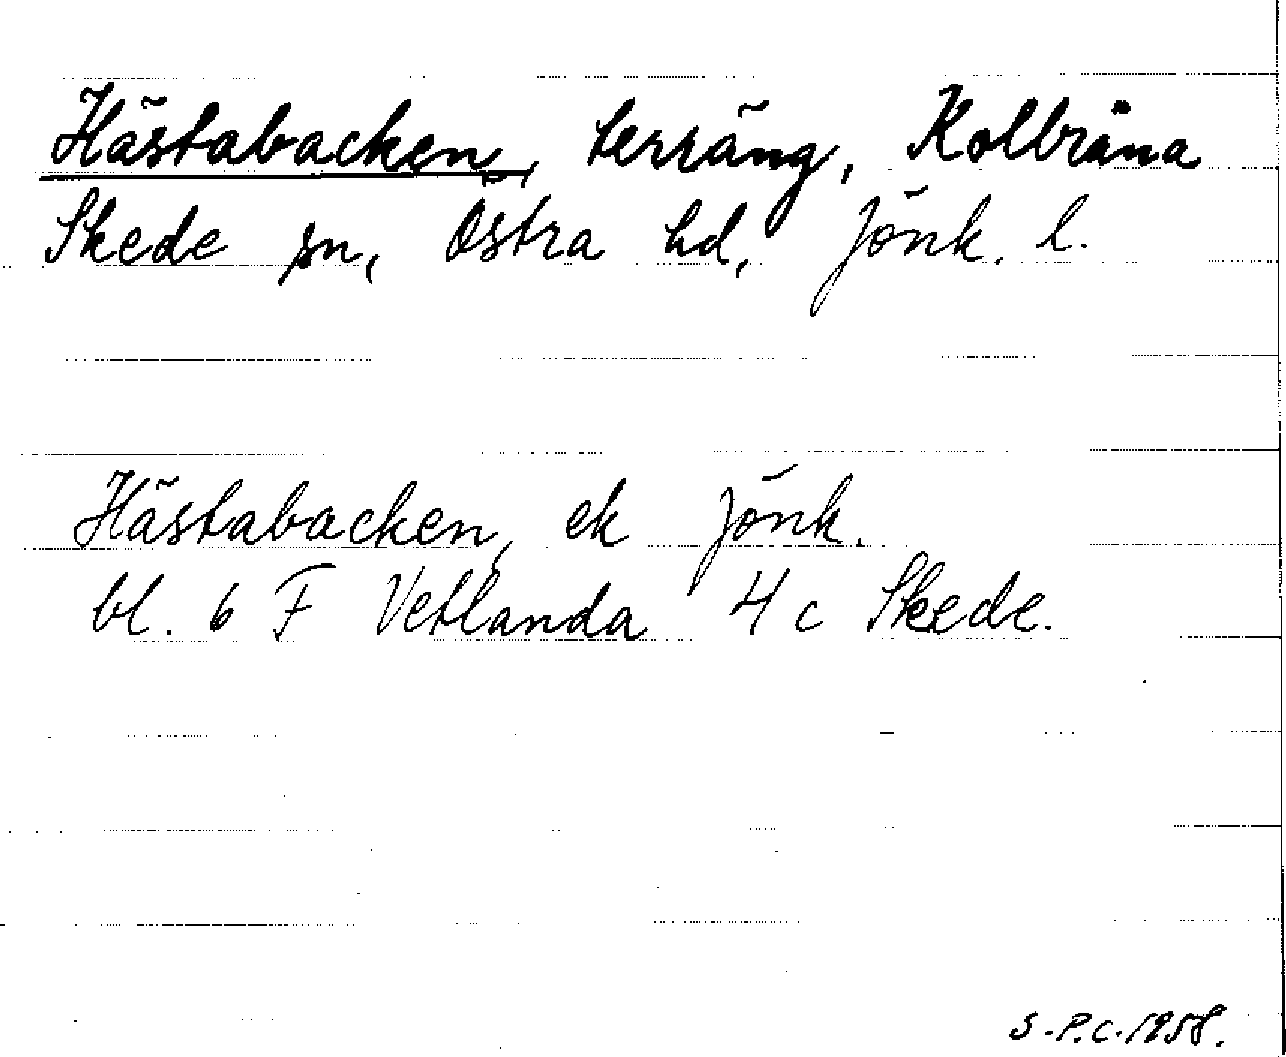 Hästabacken, terräng, Kolbräna
Skede sn, Östra hd, Jönk. l.
Hästabacken, ek Jönk.
bl. 6 F Vetlanda 4 c Skede.
S.P.C. 1958.